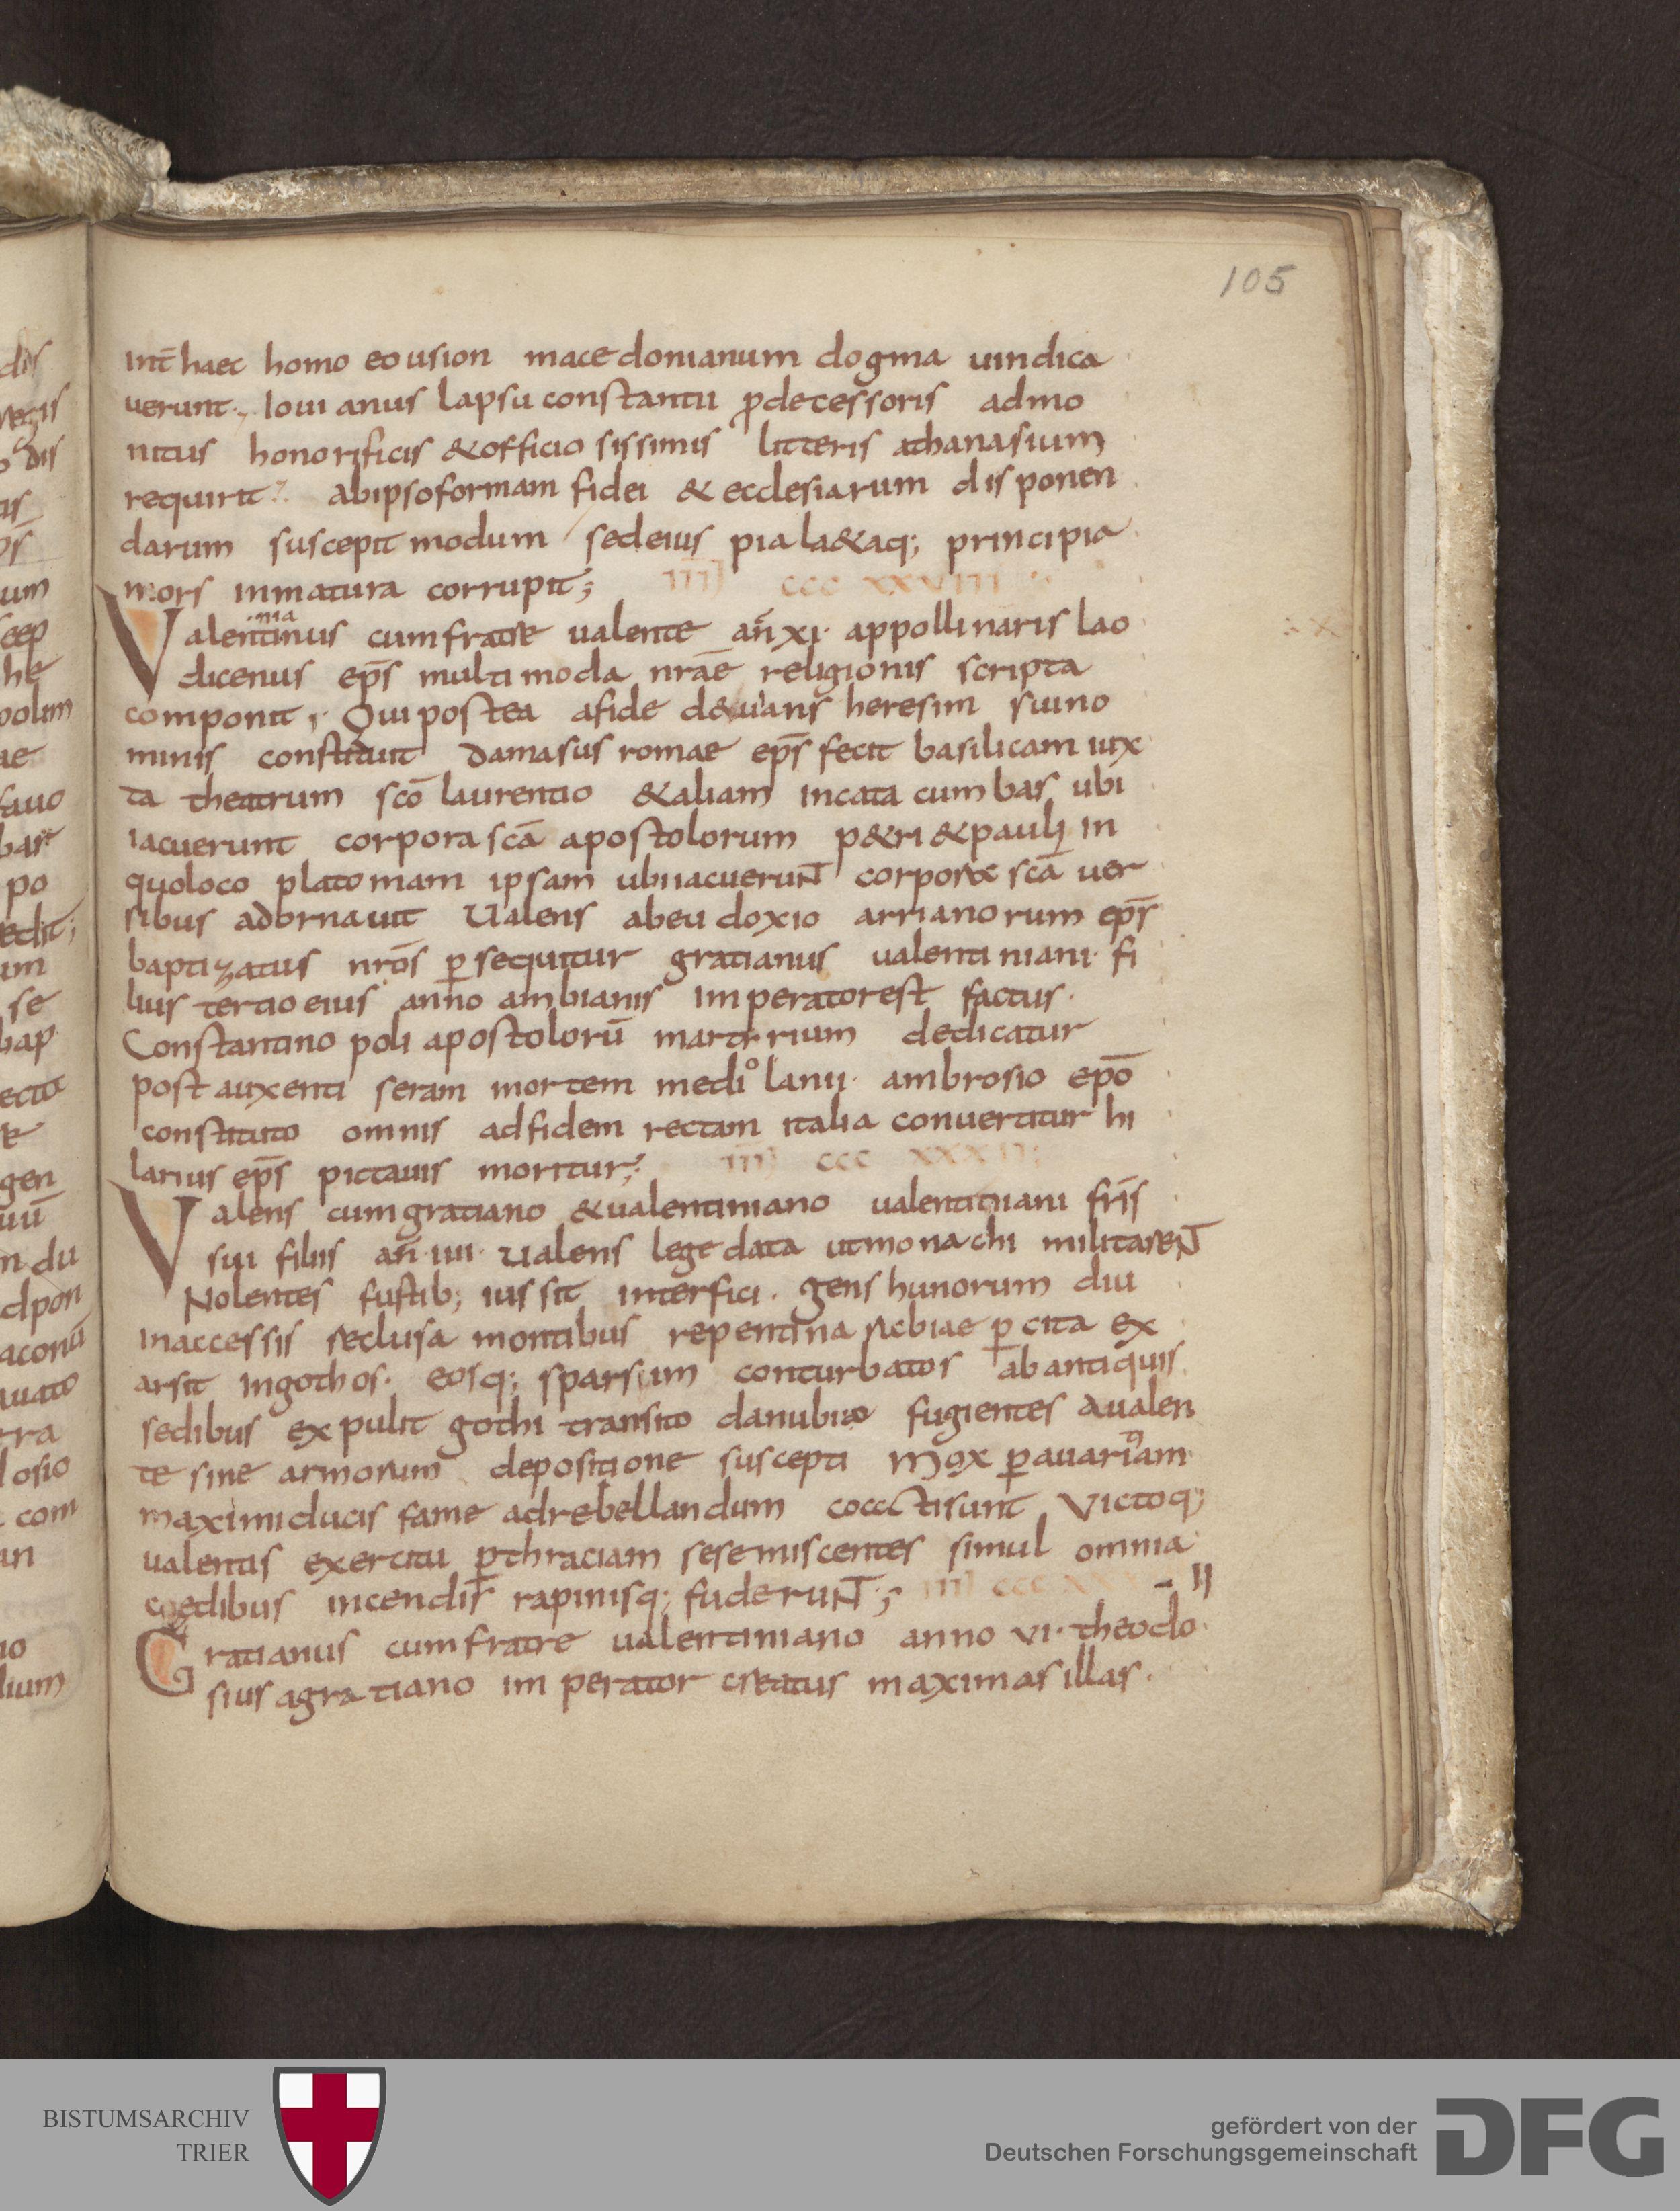 105
int̄ haec homo eousion macedonianum dogma uindica
uerunt. Iouianus lapsu constantii p̄decessoris admo
nitus honorificis & officiosissimis litteris athanasium
requirit. Ab ipso formam fidei & ecclesiarum disponen
darum suscepit modum sed eius pia la&aq; principia
mors inmatura corrupit;
IIII CCC XXVIII
Valentinus cum fratre ualente an̄ xi. appollinaris lao
nia
dicenus ep̄s multimoda nrāe religionis scripta
componit. Qui postea a fide d&uians heresim sui no
minis constituit damasus romae ep̄s fecit basilicam iux
ta theatrum sc̄o laurentio & aliam in cata cumbas ubi
iacuerunt corpora sc̄a apostolorum p&ri & pauli in
quo loco platomam ipsam ubi iacuerunt corpora sc̄a uer
sibus adornauit Ualens ab eudoxio arrianorum ep̄s
baptizatus nrōs ꝑsequitur gratianus ualentiniani fi
lius tertio eius anno ambianis imperator est factus.
Constantinopoli apostolorū martyrium dedicatur
post auxenti seram mortem mediolanii. ambrosio ep̄o
constituto omnis ad fidem rectam italia conuertitur hi
larius ep̄s pictauis moritur;
IIII CCC XXXII
Valens cum gratiano & ualentiniano ualentiniani fr̄is
sui filiis an̄ iiii. Ualens lege data ut monachi militarent
Nolentes fustib; iussit interfici. gens hunorum diu
inaccessis seclusa montibus repentina rabiae ꝑcita ex
arsit in gothos. eosq; sparsim conturbatos ab antiquis
sedibus expulit gothi transito danubio fugientes a ualen
te sine armorum depositione suscepti Mox ꝑ auaritiam
maximi ducis fame ad rebellandum coacti sunt Victoq;
ualentis exercitu ꝑ thraciam sese miscentes simul omnia
caedibus incendis rapinisq; fuderunt;
IIII CCC XXX II
Gratianus cum fratre ualentiniano anno vi. theodo
sius a gratiano imperator creatus maximas illas.
BISTUMSARCHIV
TRIER
gefördert von der
Deutschen Forschungsgemeinschaft
DFG